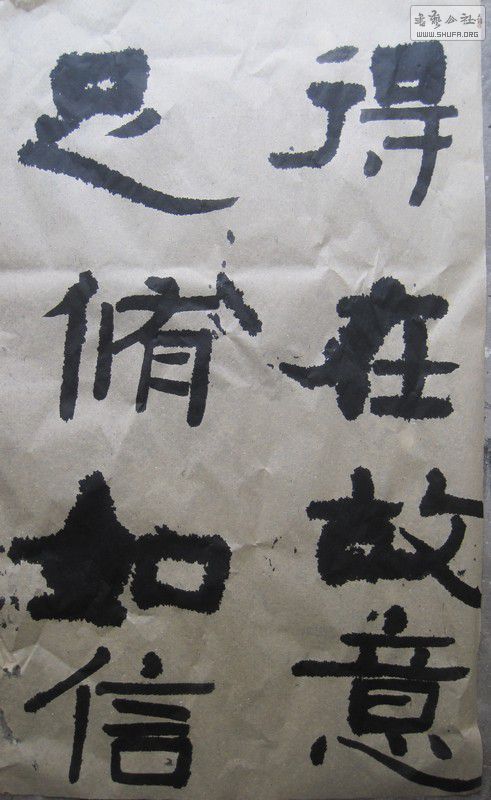 得在故意
足如信
書藝公社
WWW.SHUFA.ORG